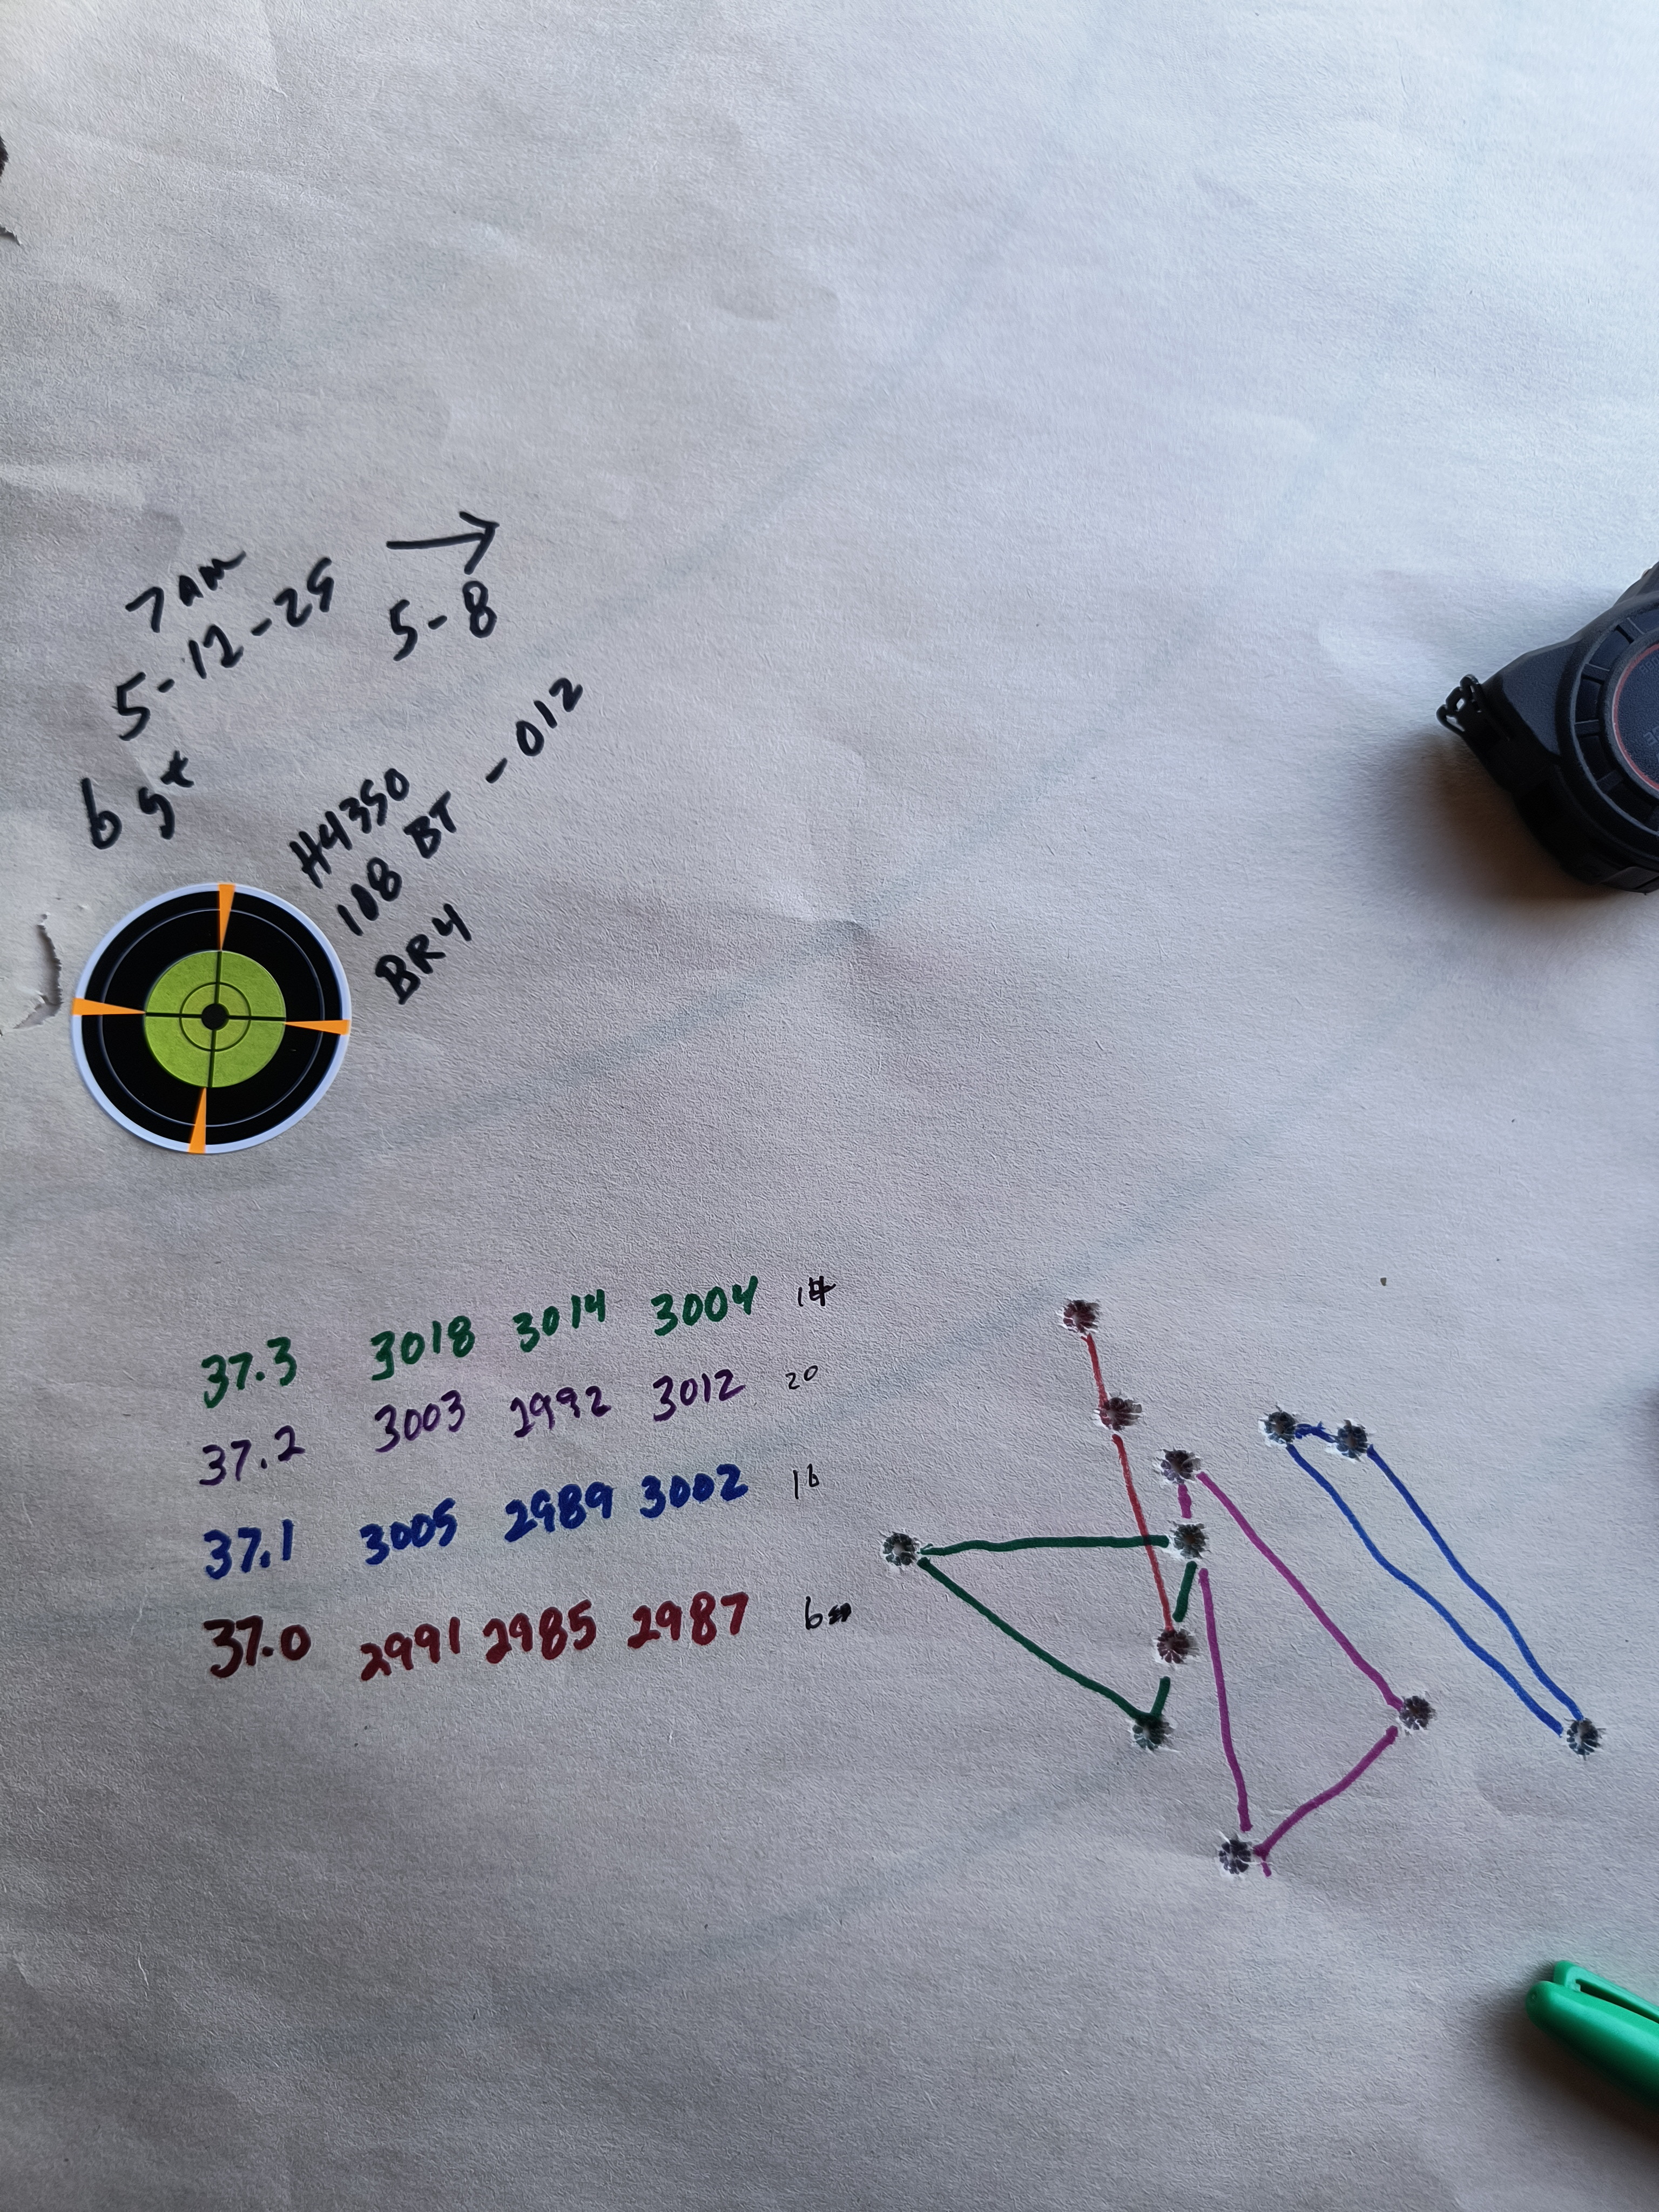 7 AM
5-12-25 →
5-8
6 gt
H4350
108 BT -012
BR4
37.3 3018 3014 3004 14
37.2 3003 2992 3012 20
37.1 3005 2989 3002 16
37.0 2991 2985 2987 6